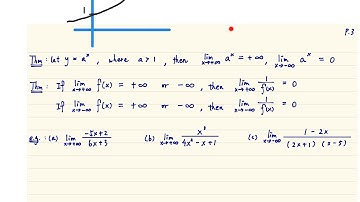 P.3
1
Thm : let y = a^x, where a > 1, then lim x→+∞ a^x = +∞, lim x→-∞ a^x = 0
Thm : If lim x→+∞ f(x) = +∞ or -∞, then lim x→+∞ 1/f(x) = 0
If lim x→-∞ f(x) = +∞ or -∞, then lim x→-∞ 1/f(x) = 0
e.g. : (a) lim x→+∞ (-5x+2)/(6x+3) (b) lim x→+∞ /(4x²-x+1) (c) lim x→-∞ (1-2x)/((2x+1)(x-5))